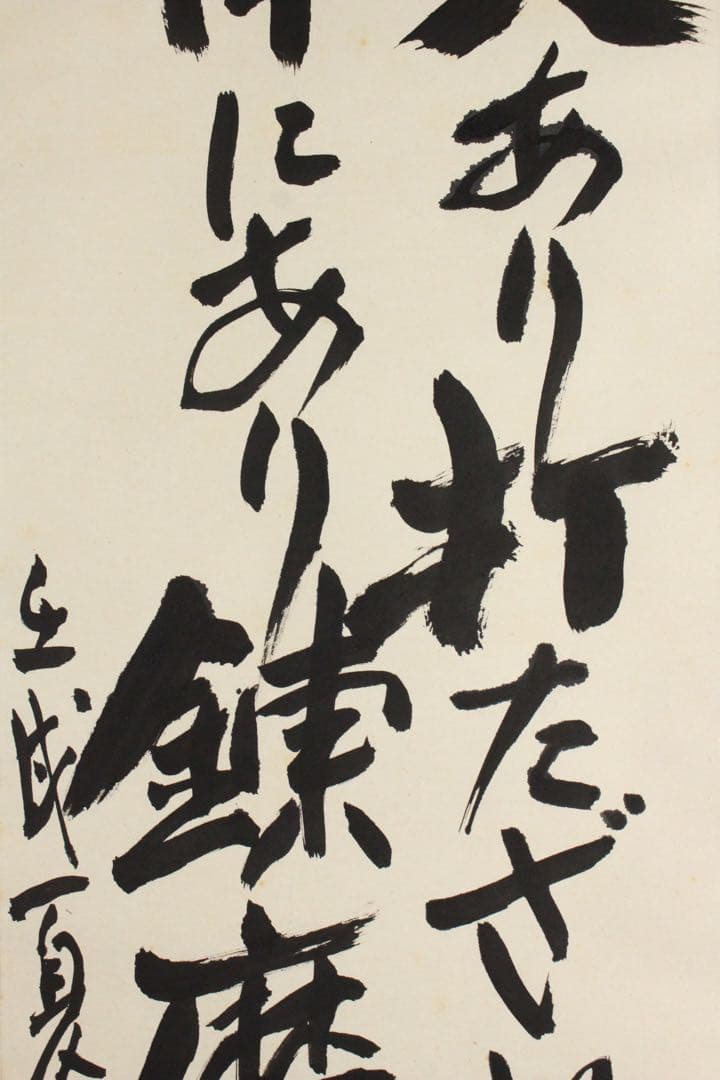 あり打たざ
にあり錬磨
壬戌夏